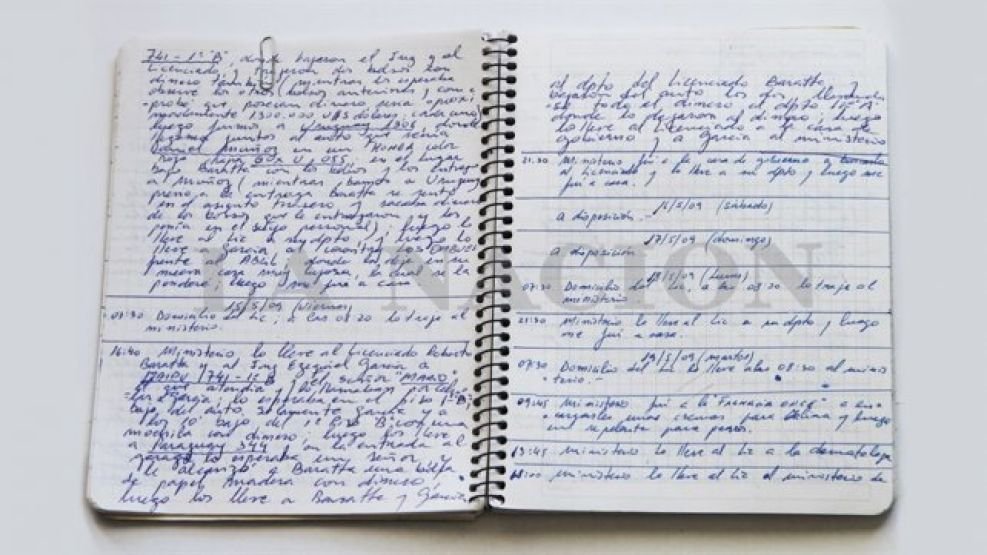 741 - 1º "B", donde bajaron el Ing y el
Licenciado, y trajeron dos bolsos con
dinero también (mientras los esperaba
observé los otros bolsos anteriores y com-
probé que poseían dinero una aproxi-
madamente 1300.000 U$S dólares, cada uno)
luego fuimos a Uruguay 1306 donde
llegamos juntos al auto que venía
Daniel Muñoz en un HONDA color
rojo chapa
bajó Baratta con los bolsos y los entregó
a Muñoz (mientras íbamos a Uruguay
previo a la entrega Baratta se sentó
en el asiento trasero y sacaba dinero
de los bolsos que le entregaron y los
ponía en el bolso personal), luego lo
llevé al Lic a su dpto y luego lo
llevé a García al
frente al donde los dejé en su
misma casa muy lujosa, la cual se la
pondera, luego me fui a casa
15/5/09 (viernes)
07:30 Domicilio del Lic, a las 08.20 lo traje al
ministerio.
16:40 Ministerio lo llevé al Licenciado Roberto
Baratta y al Ing Ezequiel García a
MAIPU 741 - 1º B el señor "MARIO"
el que atendía y
García; lo esperaba en el piso 1º B;
bajó del auto solamente García y a
los 10' bajó del 1º piso B con una
mochila con dinero, luego los llevé
a Paraguay 344 en la entrada al
garage lo esperaba un señor y
le alcanzó a Baratta una bolsa
de papel madera con dinero,
luego los llevé a Baratta y García
al dpto del Licenciado Baratta y
bajaron del auto los dos llevando-
se todo el dinero al dpto "A"
donde lo dejaron al dinero; luego
lo llevé al Licenciado a la casa de
gobierno y a García al ministerio
21.30 Ministerio fui a la casa de gobierno y
al Licenciado y lo llevé a su dpto y luego me
fui a casa.
16/5/09 (sábado)
a disposición.-
17/5/09 (domingo)
a disposición
18/5/09 (lunes)
07:30 Domicilio del Lic, a las 08:20 lo traje al
ministerio
21:30 Ministerio lo llevé al Lic a su dpto y luego
me fui a casa.
19/5/09 (martes)
07:30 Domicilio del Lic lo llevé a las 08:30 al minis-
terio.-
09:45 Ministerio fui a la Farmacia a en-
cargarles unas cremas para y luego
un repelente para perros.
13:45 ministerio lo llevé al Lic a la dermatóloga
ministerio lo llevé al Lic al ministerio de
LA NACION